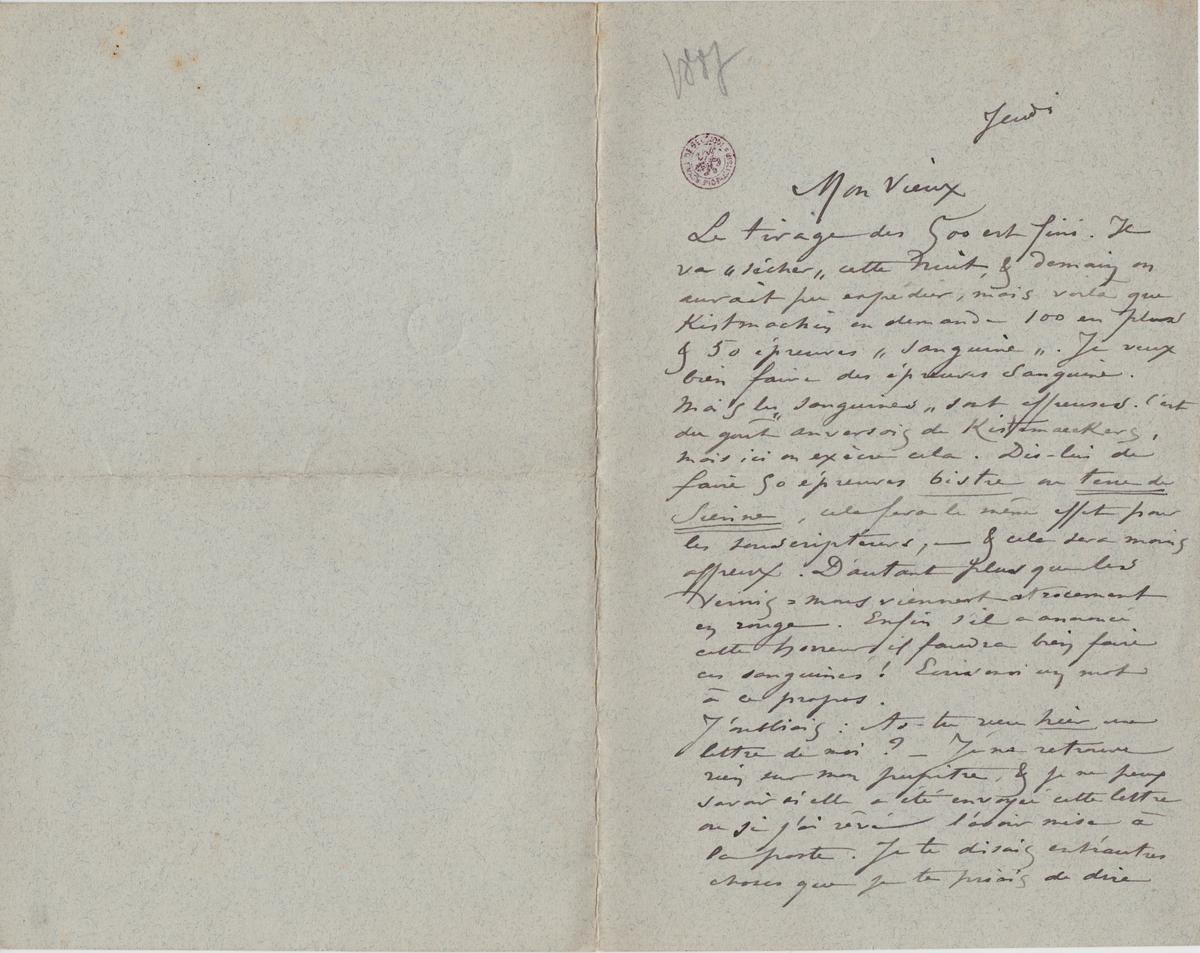 1887
Jeudi
Mon Vieux
Le tirage des 500 est fini. Il
va „sécher„ cette Nuit & demain on
aurait pu expédier, mais voilà que
Kistmackers en demande 100 en plus
& 50 épreuves „ Sanguine „. Je veux
bien faire des épreuves Sanguine.
Mais les „sanguines„ sont affreuses. C'est
du goût anversois de Kistemaeckers,
mais ici on exècre cela. Dis-lui de
faire 50 épreuves bistre ou terre de
Sienne, cela fera le même effet pour
les souscripteurs, — & cela sera moins
affreux. D'autant plus que les
Vernis = mous viennent atrocement
en rouge. Enfin s'il a annoncé
cette horreur il faudra bien faire
ces sanguines ! Ecris moi un mot
à ce propos.
J'oubliais : As-tu reçu hier une
lettre de moi ? — Je ne retrouve
rien sur mon pupitre, & je ne peux
savoir si elle a été envoyée cette lettre
ou si j'ai rêvé l'avoir mise à
la poste. Je te disais entr'autres
choses que je te priais de dire